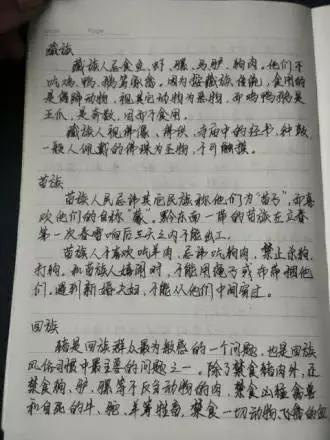 藏族
藏族人忌食鱼、虾、骡、马、驴、狗肉。他们不
吃鸡、鸭、鹅等家禽。因为按藏族传统，食用的
是偶蹄动物，视其它动物为恶物，而鸡鸭鹅是
五爪，是奇数，因而不食用。
藏族人视佛像、佛经、寺庙中的经书、钟鼓、
一般人佩戴的佛珠为圣物，不可触摸。
苗族
苗族人民忌讳其它民族称他们为“苗子”，而喜
欢他们的自称“蒙”。黔东南一带的苗族在立春
第一次春雷响后三天之内不能出工。
苗族人不喜欢吃羊肉，忌讳吃狗肉，禁止杀狗、
打狗。和苗族人嬉闹时，不能用绳子或布带捆他
们。遇到新婚夫妇，不能从他们中间穿过。
回族
猪是回族群众最为敏感的一个问题，也是回族
风俗习惯中最主要的问题之一。除了禁食猪肉外，还
禁食狗、驴、骡等不反刍动物的肉，禁食凶猛禽兽
和自死的牛、驼、羊等牲畜，禁食一切动物飞禽的血